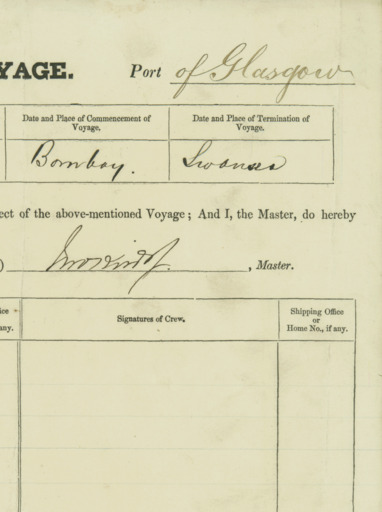 YAGE. Port of Glasgow
Date and Place of Commencement of Voyage. Date and Place of Termination of Voyage.
Bombay. Swansea
ect of the above-mentioned Voyage ; And I, the Master, do hereby
) , Master.
ice Signatures of Crew. Shipping Office
or
any. Home No., if any.